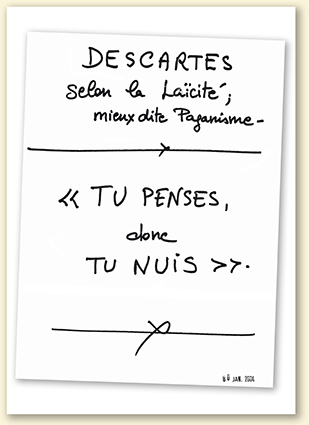 DESCARTES
selon la Laïcité ;
mieux dite Paganisme -
« TU PENSES,
donc
TU NUIS » .
JAN. 2006